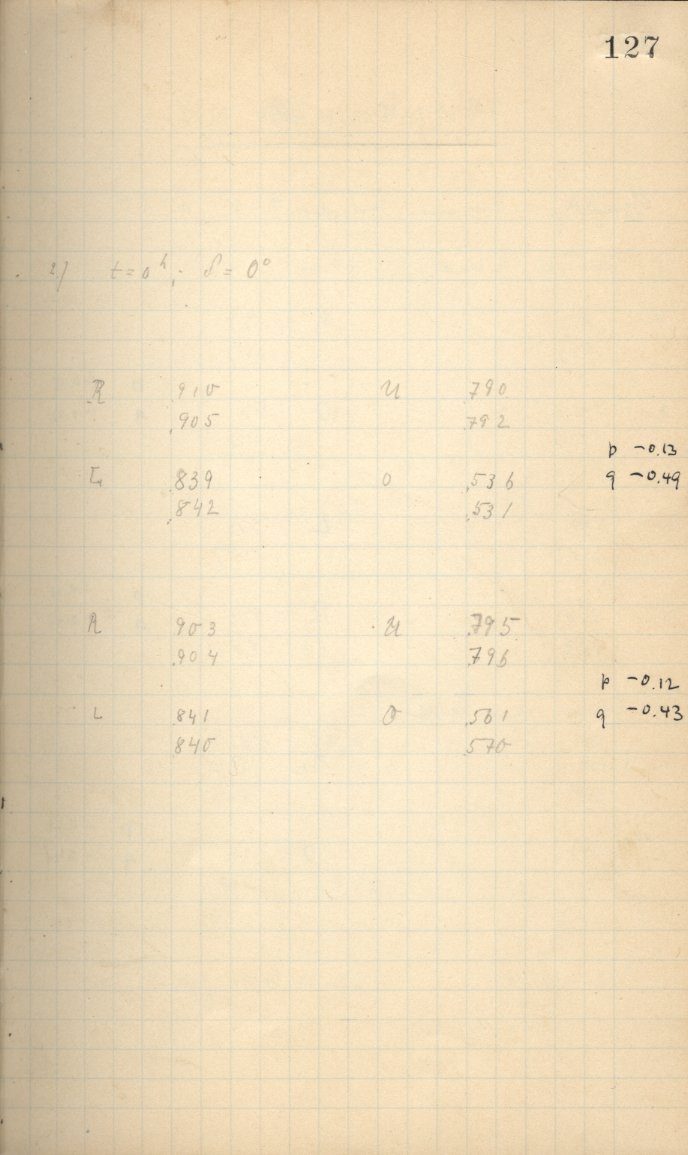 127
2.) t = 0h; δ = 0°
R .910 U .790
.905 .792
p -0.13
L .839 O .536 q -0.49
.842 .531
R .903 U .795
.904 .796
p -0.12
L .841 O .561 q -0.43
.840 .570